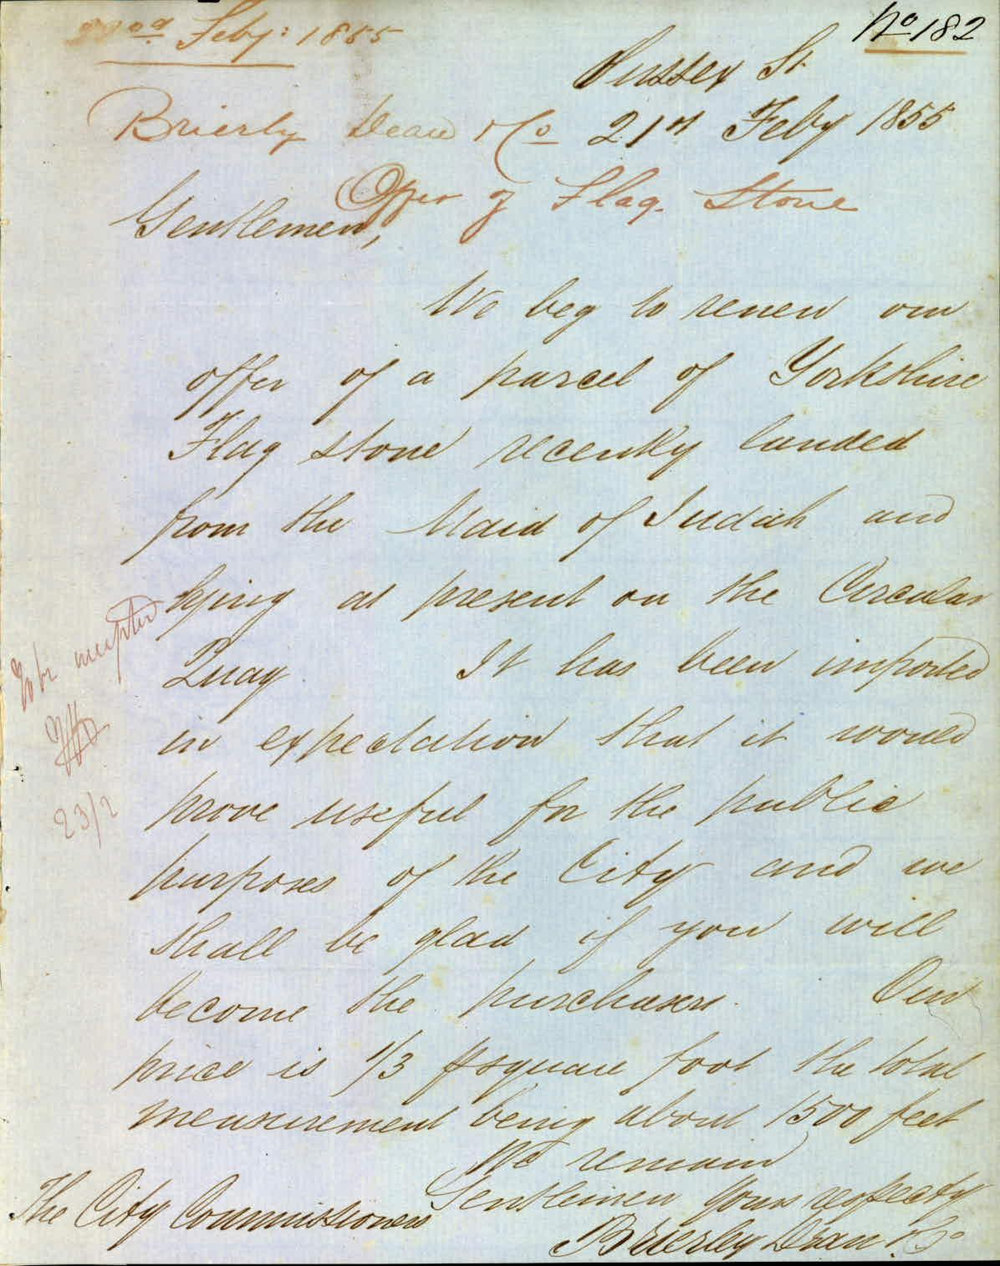 22nd Feby: 1855
No 182
Sussex St
Brierly Dean & Co
21st Feby 1855
Offer of Flag Stone
Gentlemen,
We beg to renew our
offer of a parcel of Yorkshire
Flag stone recently landed
from the Maid of Judah and
lying at present on the Circular
Quay It has been imported
in expectation that it would
prove useful for the public
purposes of the City and we
shall be glad if you will
become the purchasers. Our
price is 1/3 p square foot the total
measurement being about 1500 feet
We remain
Gentlemen Yours respectfy
Brierley Dean & Co
The City Commissioners
accepted
23/2